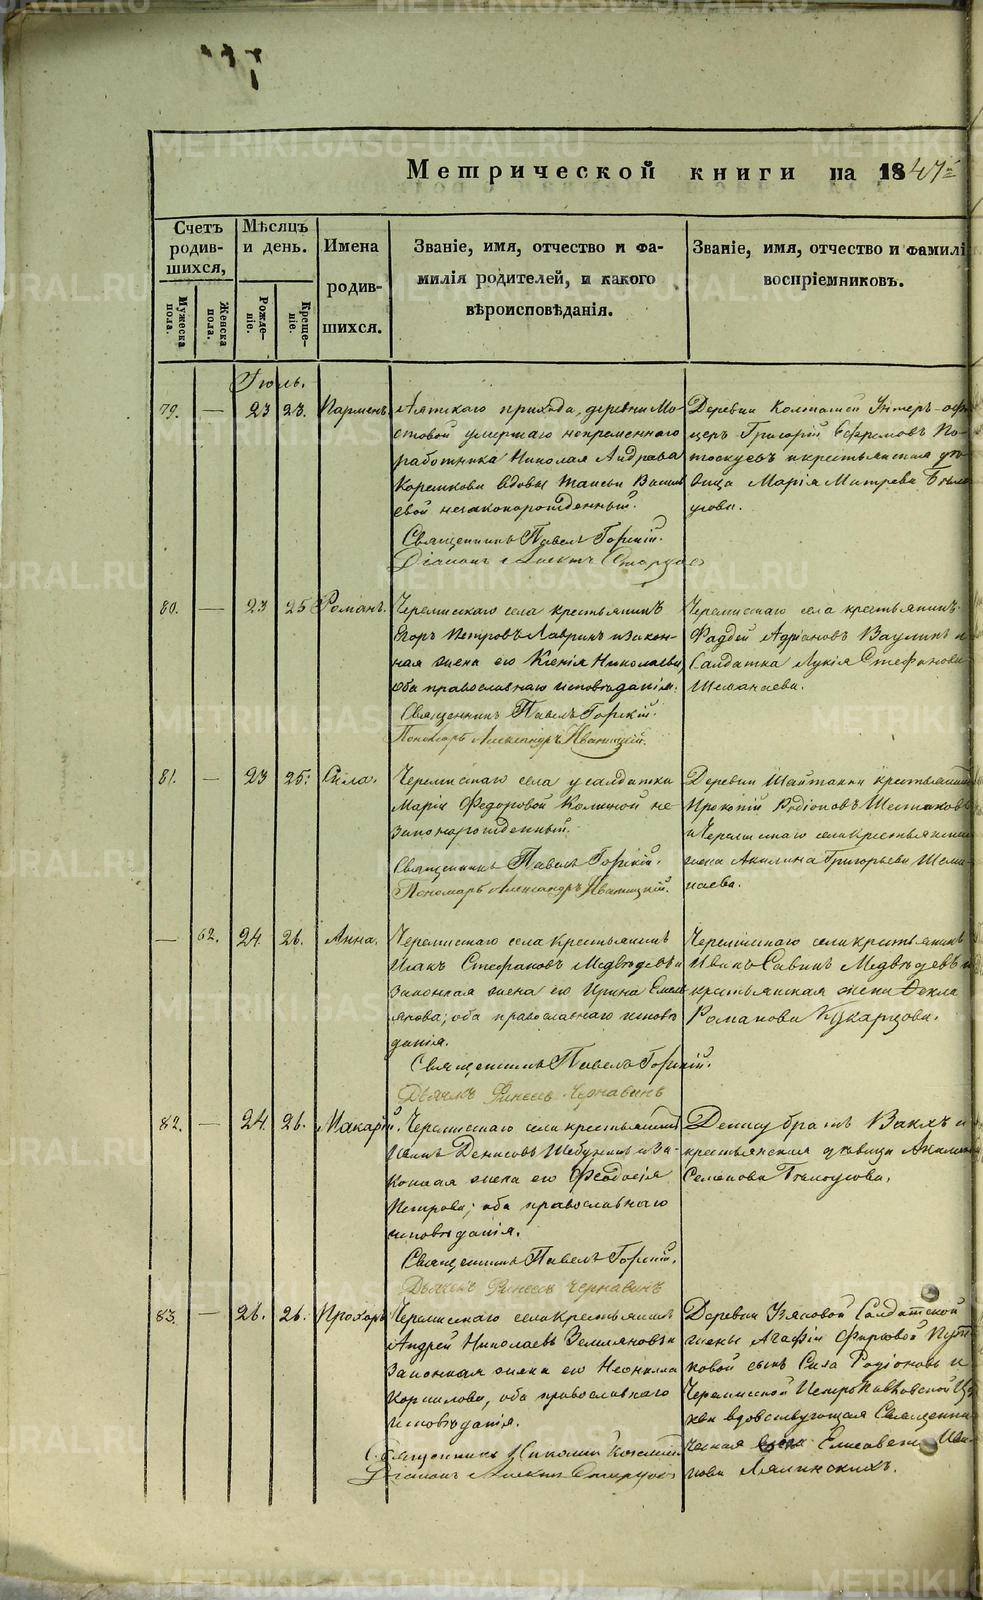 Метрической книги на 1847й
Счетъ родив-
шихся,
Мужеска пола.
Женска пола.
Мѣсяцъ
и день.
Рожде-
ніе.
Креще-
ніе.
Имена
родив-
шихся.
Званіе, имя, отчество и фа-
милія родителей, и какого
вѣроисповѣданія.
Званіе, имя, отчество и фамилі
воспріемниковъ.
Іюль.
79. — 23 23. Парменъ.
Аятскаго прихода, деревни Мо-
стовой умершаго непременнаго
работника Николая Андрева
Корелкова вдовы Таисьи Васил
евой незаконорожденный.
Священникъ Павелъ Горскій.
Діаконъ
Деревни Колташей Унтеръ-офи
церъ Григорій Ефремовъ По-
тоскуевъ и крестьянская дѣ-
вица Марія Митрева Бѣло
усова.
80. — 23 25 Романъ.
Черемисскаго села крестьянинъ
Егоръ Петровъ Лавринъ и закон-
ная жена его Ксенія Николаева
оба православнаго исповѣданія.
Священникъ Павелъ Горскій.
Пономарь Александръ Иваницкій.
Черемисскаго села крестьянинъ
Фаддей Адріановъ Ваулинъ и
Солдатка Лукія Стефанова
Шеманаева.
81. — 23 25. Сила.
Черемисскаго села у солдатки
Маріи Федоровой Колиной не
законорожденный.
Священникъ Павелъ Горскій.
Пономарь Александръ Иваницкій.
Деревни Шайтанки крестьянинъ
Прокопій Родіоновъ Шестаковъ
и Черемисскаго села крестьянская
жена Акилина Григорьева Шема
наева.
— 62. 24. 26. Анна.
Черемисскаго села крестьянинъ
Исакъ Стефановъ Медвѣдевъ и
законная жена его Ирина Емель
янова; оба православнаго исповѣ
данія.
Священникъ Павелъ Горскій.
Дьячекъ Финеесъ Чернавинъ
Черемисскаго села крестьянинъ
Иванъ Савинъ Медвѣдевъ и
крестьянская жена Фекла
Романова Кукарцова.
82. — 24. 26. Макарій.
Черемисскаго села крестьянинъ
Денисовъ и за-
конная жена его Феодосія
Петрова; оба православнаго
исповѣданія.
Священникъ Павелъ Горскій.
Дьячекъ Финеесъ Чернавинъ
Денису братъ Вакхъ и
крестьянская дѣвица Акилина
Семенова Бѣлоусова.
83. — 26. 26. Прохоръ.
Черемисскаго села крестьянинъ
Андрей Николаевъ Земляновъ и
законная жена его Неонилла
Корнилова, оба православнаго
исповѣданія.
Священникъ Николай
Діаконъ
Деревни Узяновой Солдатской
жены Агафіи Фирсовой Пути
ковой сынъ Сила Родіоновъ и
Черемисской Петро Павловской Це
кви вдовствующая Священни
ческая жена Елисавета Ива
нова Лялинскихъ.
METRIKI.GASO-URAL.RU